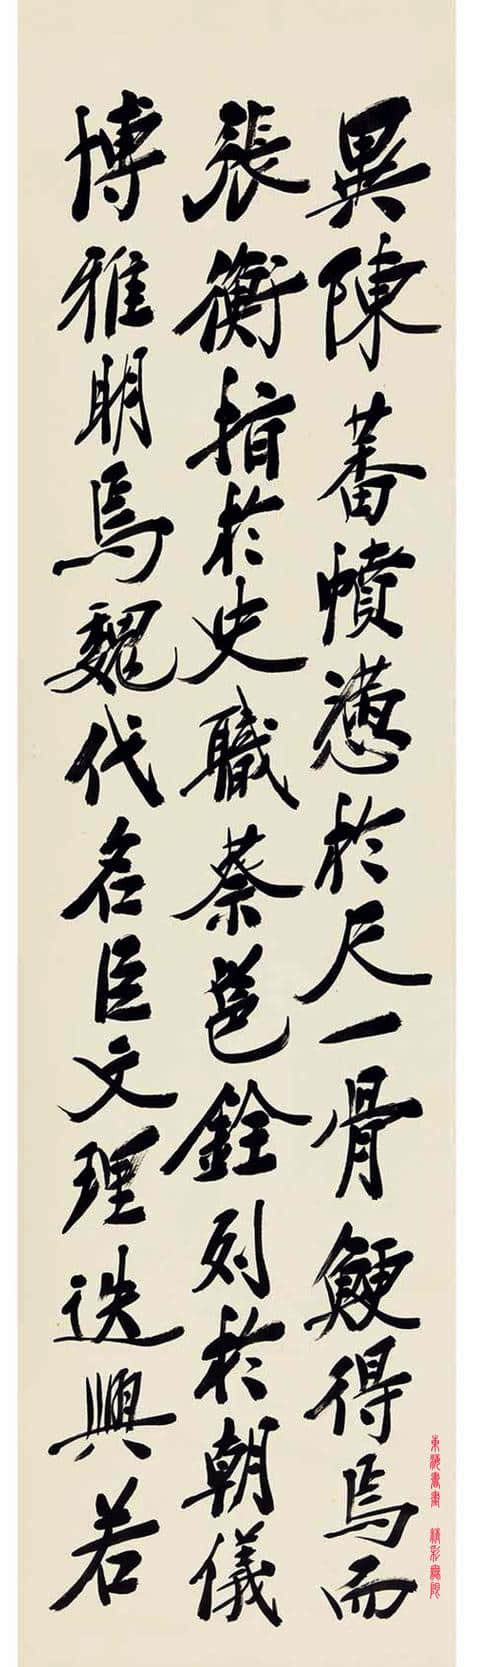 異陳蕃憤懣於尺一骨鯁得焉而
張衡指於史職蔡邕銓列於朝儀
博雅明焉魏代名臣文理迭興若
東海書畫 精彩無限